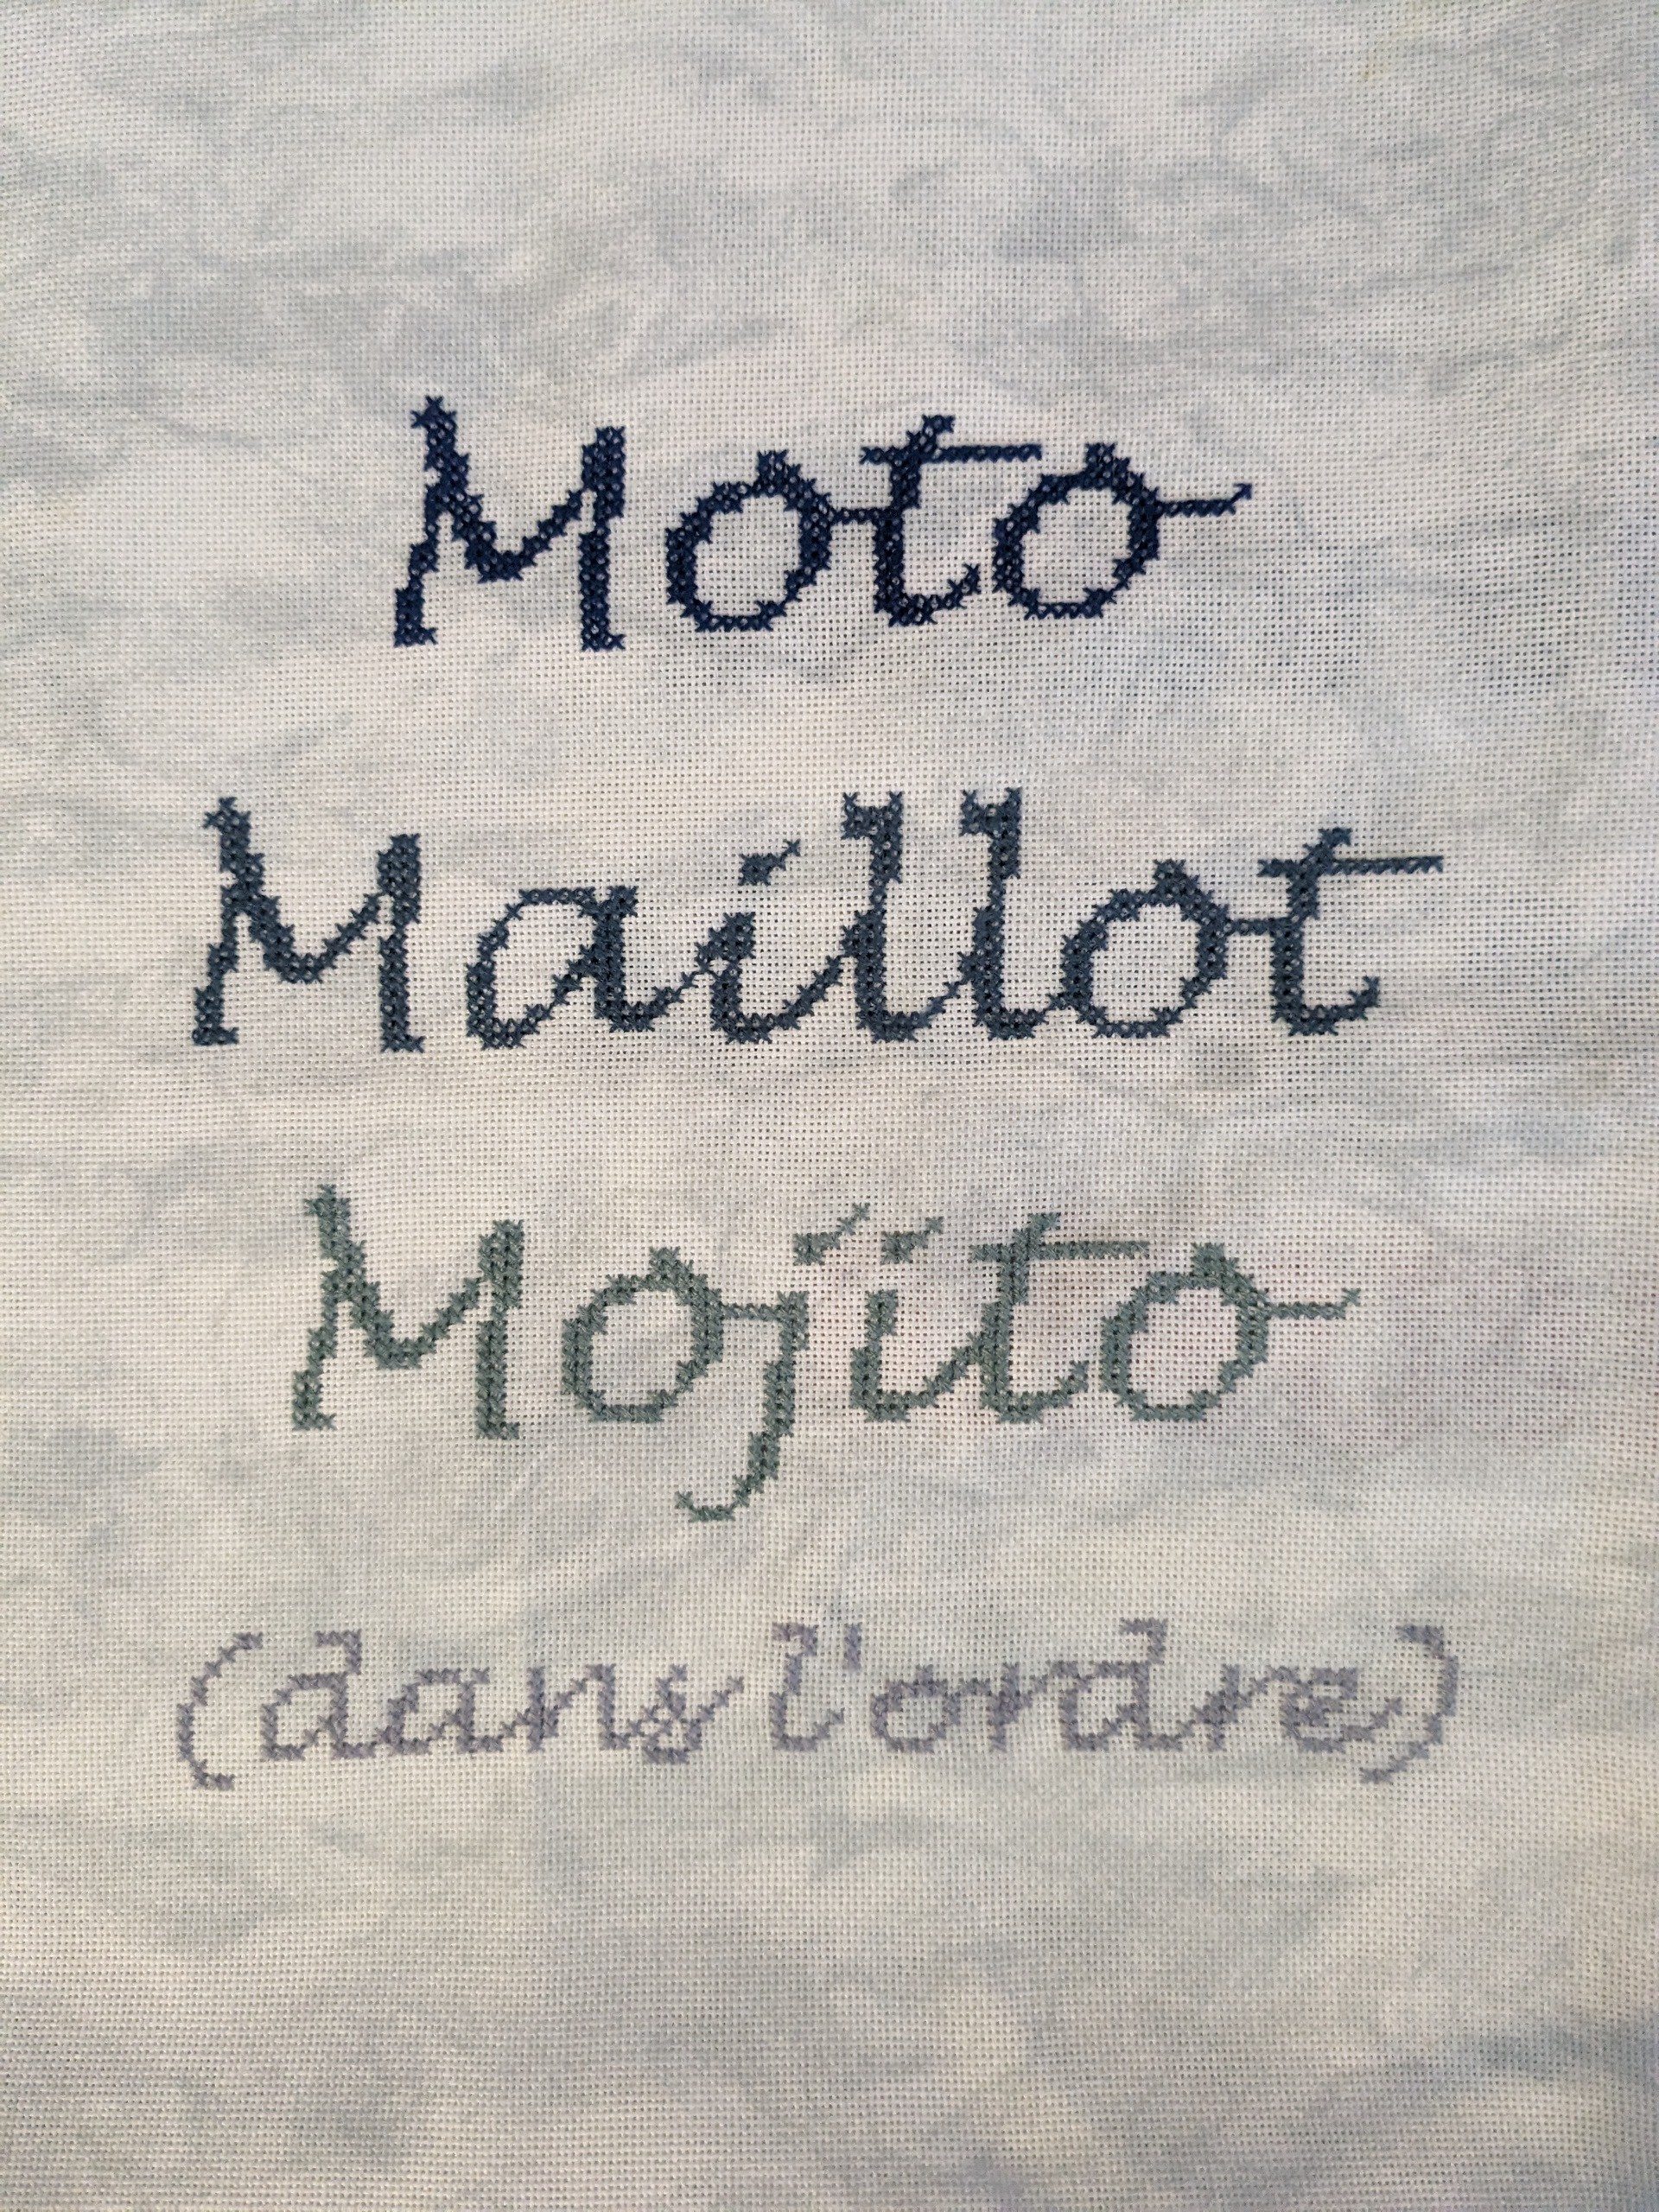 Moto
Maillot
Mojito
(dans l'ordre)